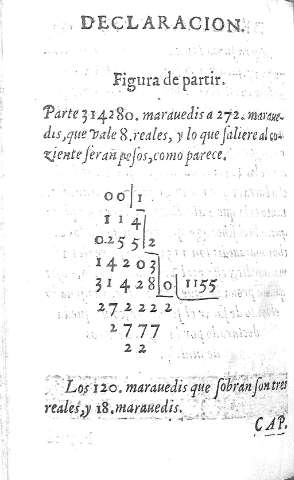 DECLARACION.
Figura de partir.
Parte 314280. marauedis a 272. maraue-
dis, que vale 8. reales, y lo que saliere al co-
ziente serañ pesos, como parece.
00|1
114|
0.255|2
14203|
31428|0|1155
272222
2777
22
Los 120. marauedis que sobran son tres
reales, y 18. marauedis.
CAP.